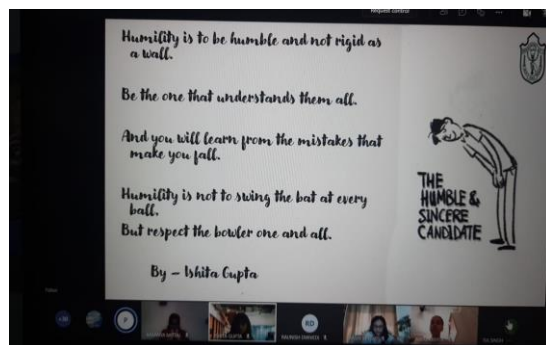 Request control
Humility is to be humble and not rigid as
a wall.
Be the one that understands them all.
And you will learn from the mistakes that
make you fall.
Humility is not to swing the bat at every
ball.
But respect the bowler one and all.
By - Ishita Gupta
THE
HUMBLE &
SINCERE
CANDIDATE
P
RD